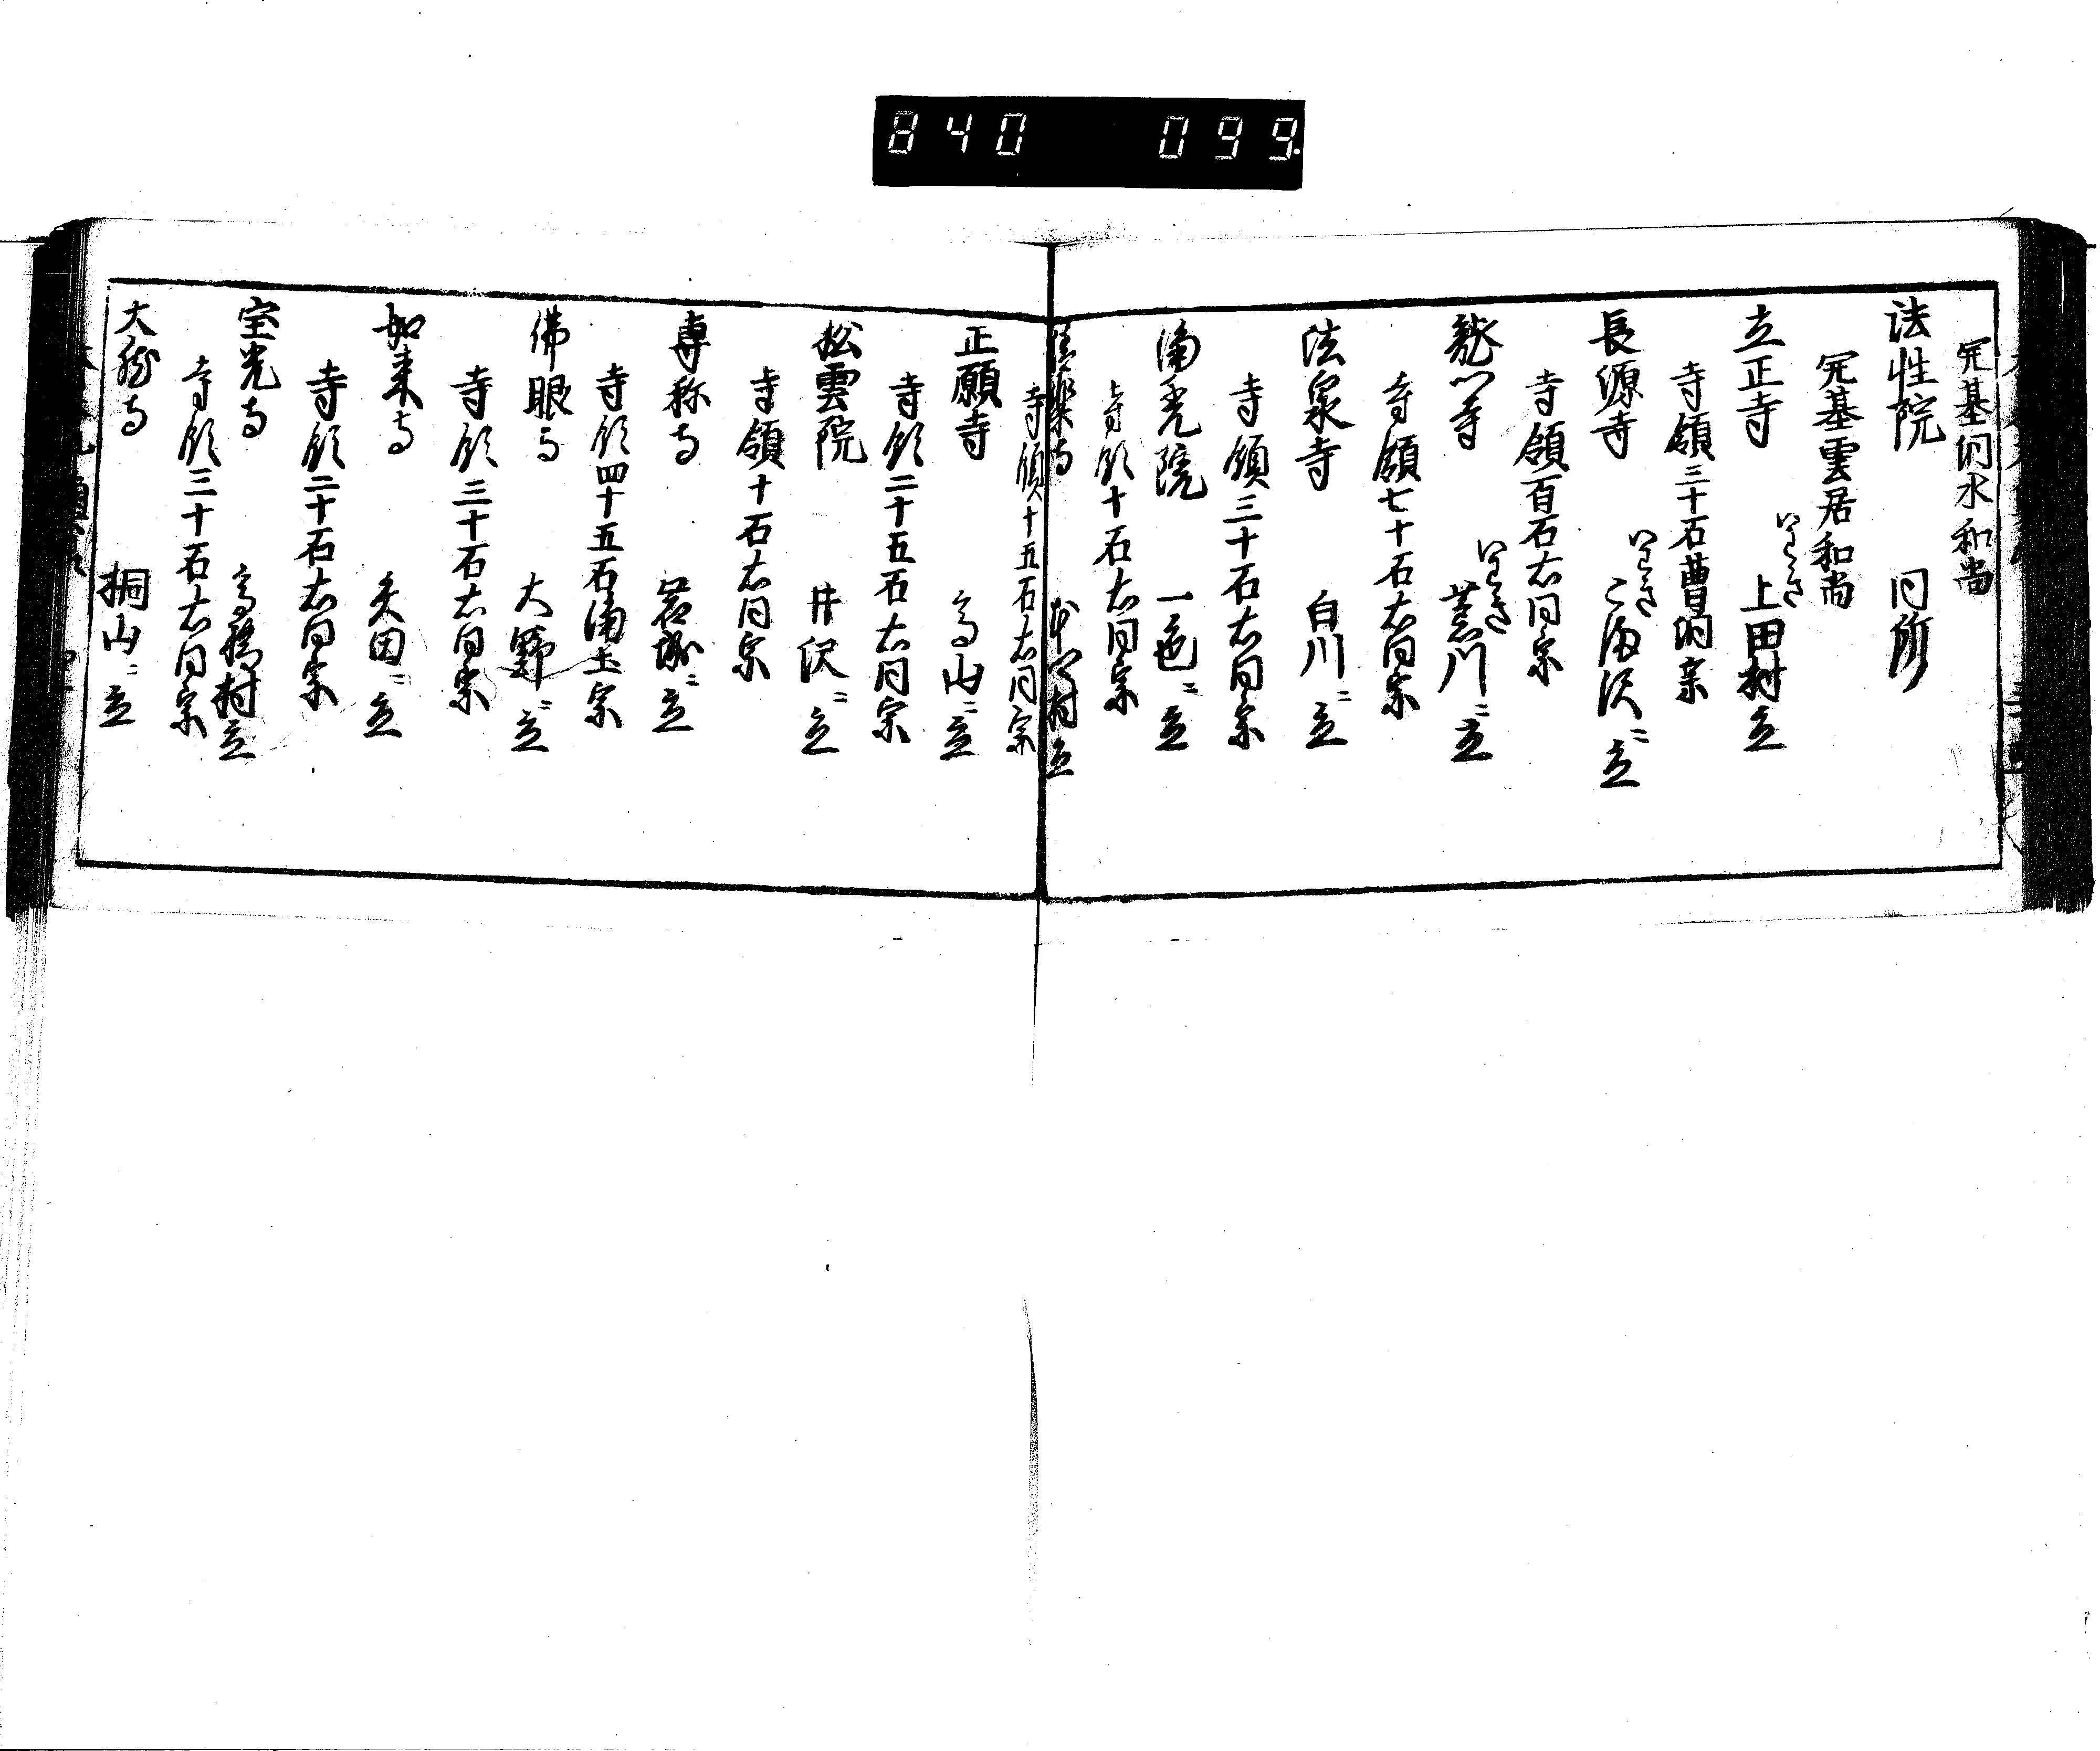 840 099.
冗基洞水和尚
法性院 同所
冗基雲居和尚
立正寺 いわき 上田村立
寺領三十石曹洞宗
長源寺 いわき ニ立
寺領百石右同宗
龍門寺 いわき 荒川ニ立
寺領七十石右同宗
法泉寺 白川ニ立
寺領三十石右同宗
浄光院 一色ニ立
寺領十石右同宗
村立
寺領十五石右同宗
正願寺 高山ニ立
寺領二十五石右同宗
松雲院 井沢ニ立
寺領十石右同宗
専称寺 岩城ニ立
寺領四十五石浄土宗
佛眼寺 大野ニ立
寺領三十石右同宗
如来寺 矢田ニ立
寺領二十石右同宗
宝光寺 村立
寺領三十石右同宗
大 寺 桐山ニ立